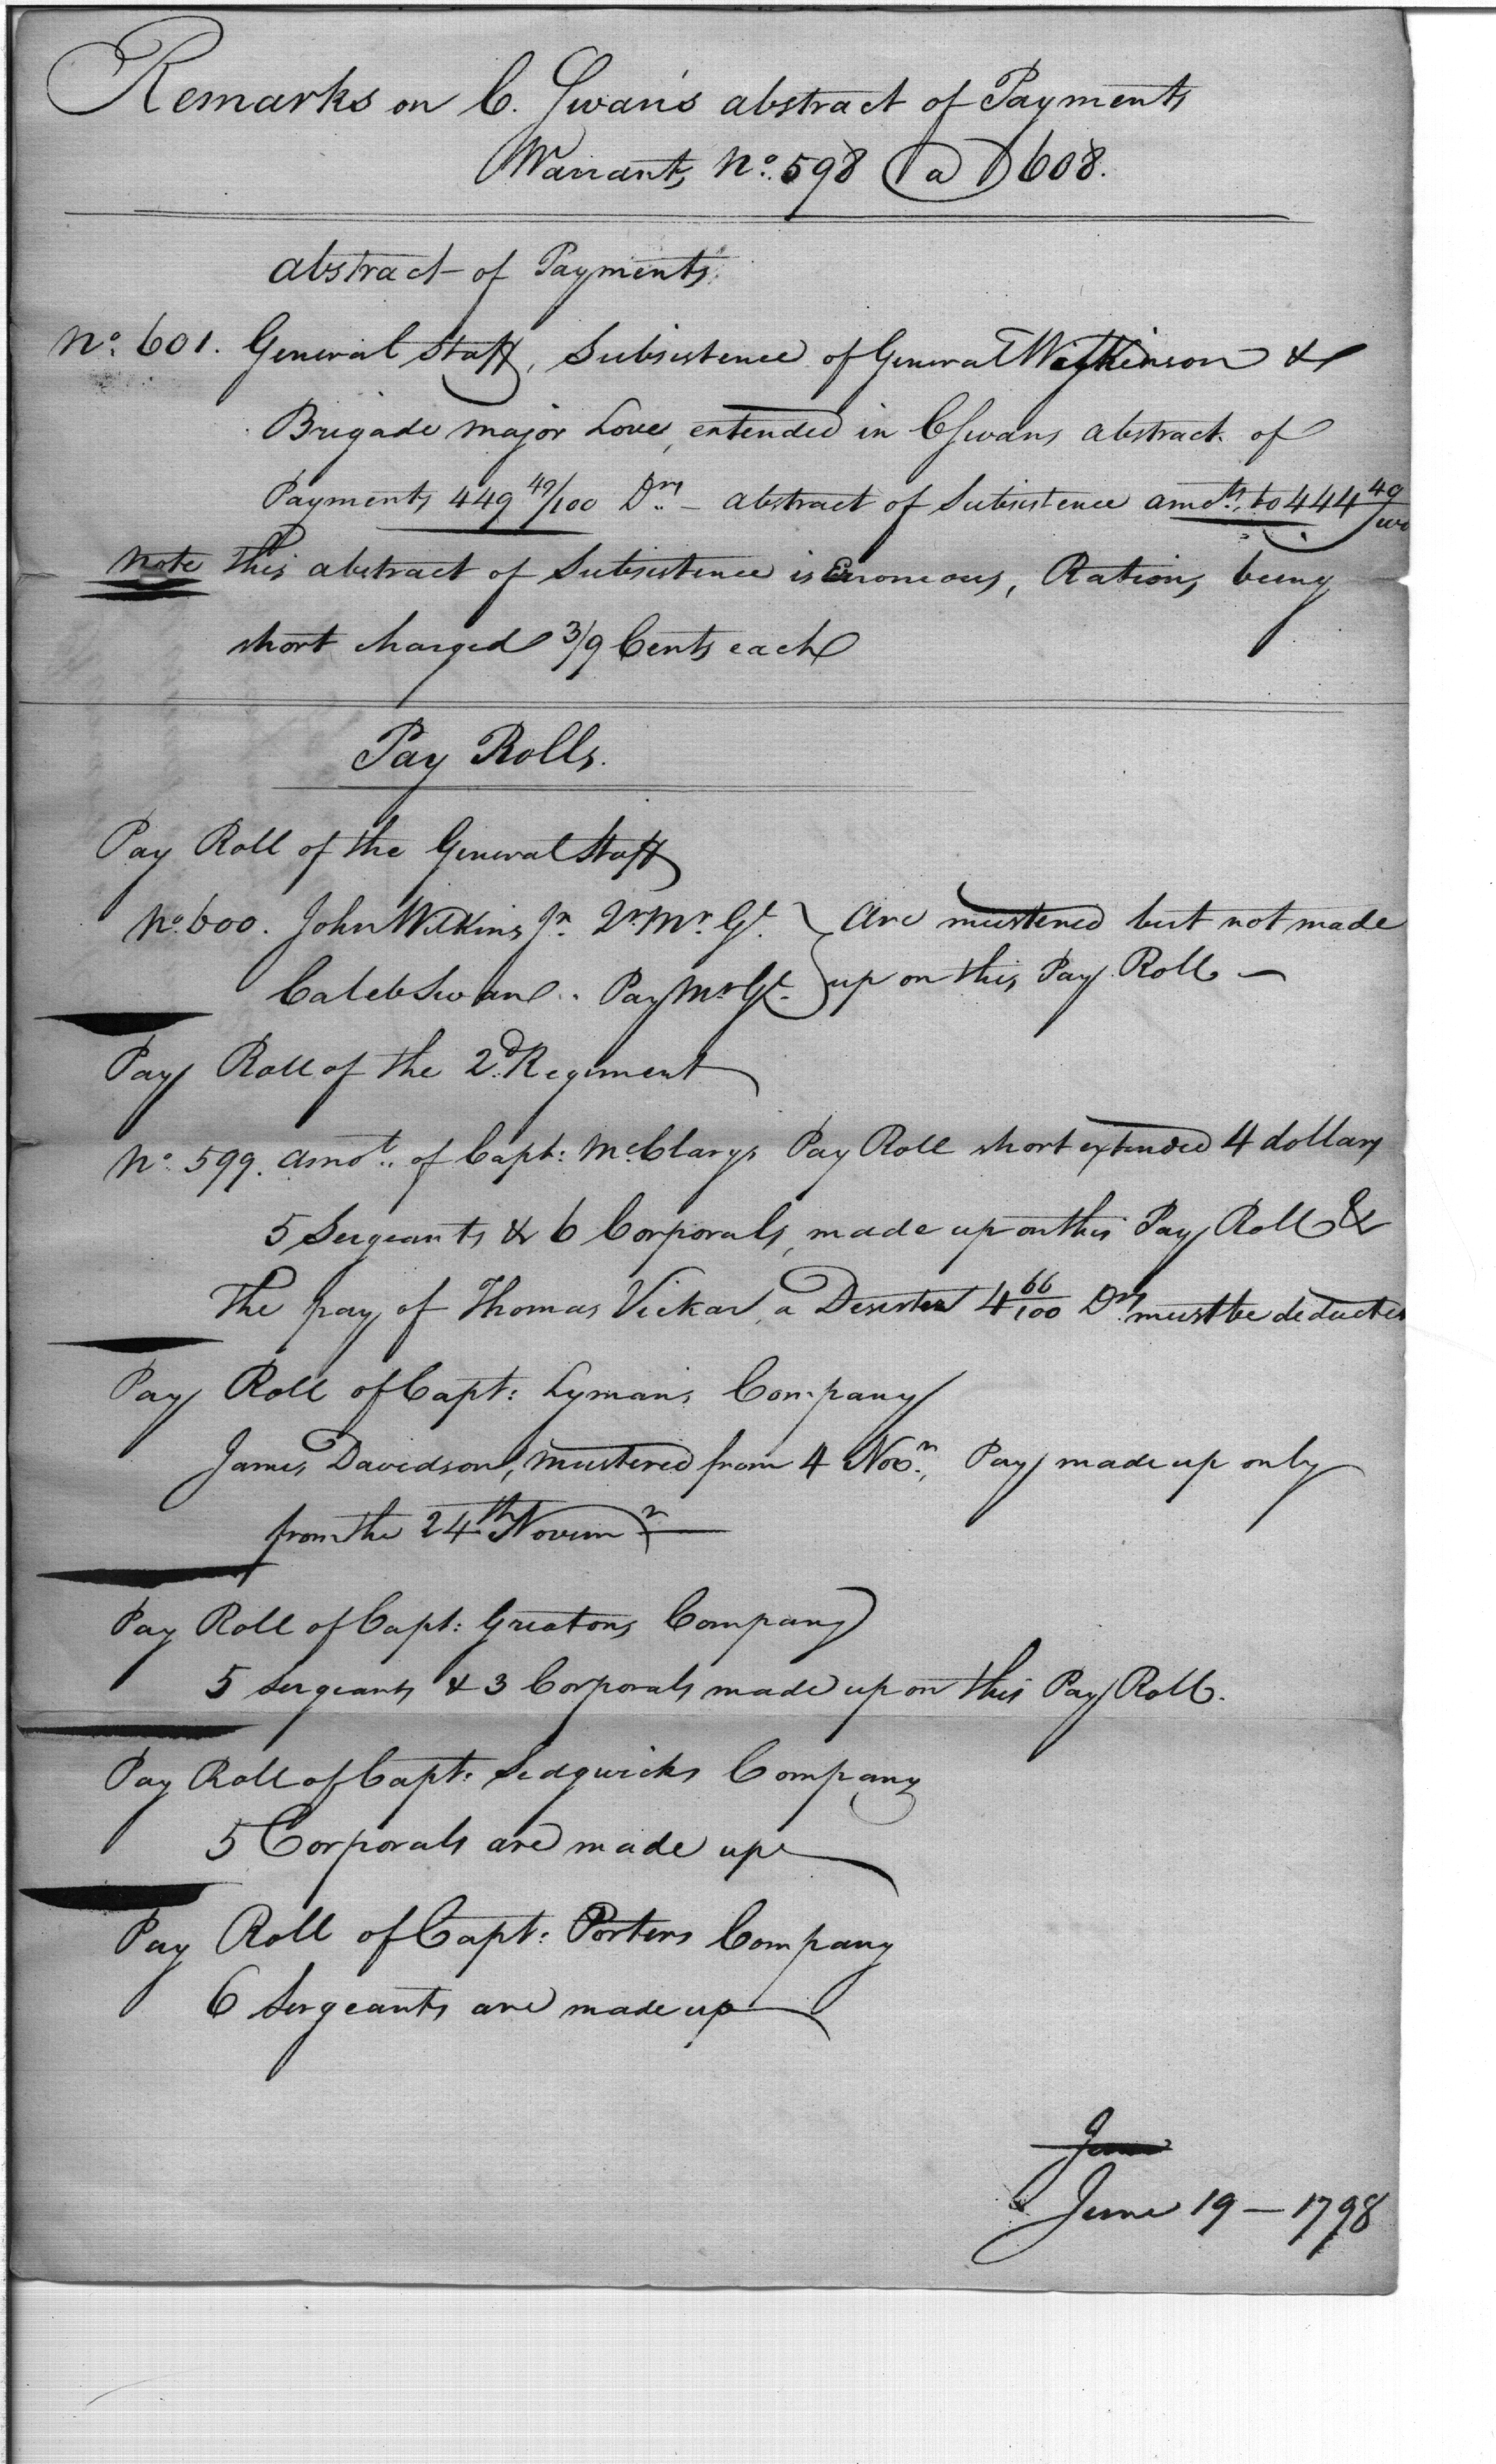 Remarks on C. Swan's abstract of Payments
Warrants No. 598 @ 608.
Abstract of Payments
No. 601. General Staff, Subsistence of General Wilkinson &
Brigade major Love, extended in C Swans abstract of
Payments 449 49/100 Drs - abstract of Subsistence amots. to 444 49/100
Note This abstract of Subsistence is Erroneous, Rations being
short charged 3/9 Cents each
Pay Rolls.
Pay Roll of the General Staff
No. 600. John Wilkins Jr. Qr. Mr. Gl. } Are mustered but not made
Caleb Swan .. Pay Mr Gl. } up on this Pay Roll —
Pay Roll of the 2d. Regiment
No. 599. amot.. of Capt: McClarys Pay Roll short extended 4 dollars
5 Sergeants & 6 Corporals, made up on this Pay Roll &
The pay of Thomas Vickar, a Deserter 4 66/100 Drs. must be deducted
Pay Roll of Capt: Lyman's Company
James Davidson, mustered from 4 Novr., Pay made up only
from the 24th Novemr
Pay Roll of Capt: Greatons Company
5 Sergeants & 3 Corporals made up on this Pay Roll.
Pay Roll of Capt: Sedgwicks Company
5 Corporals are made up
Pay Roll of Capt: Porters Company
6 Sergeants are made up
June
June 19 — 1798